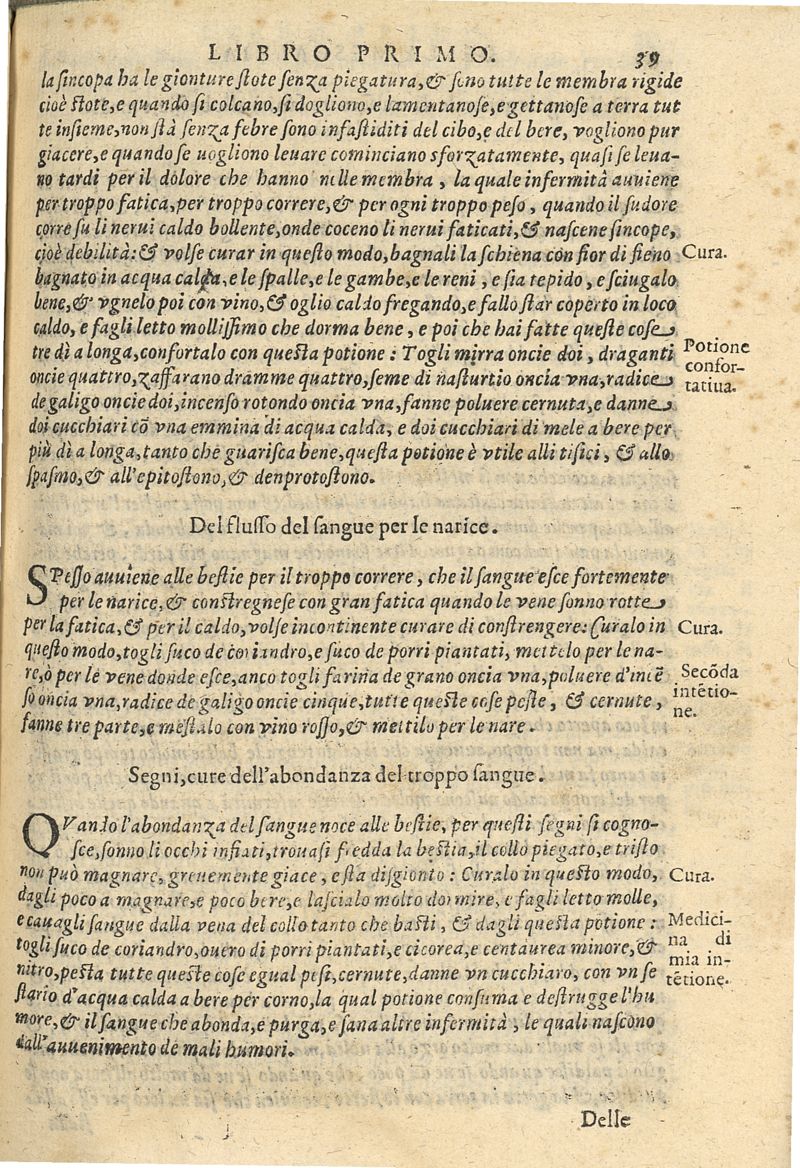 LIBRO PRIMO. 39
la sincopa ha le gionture stote senza piegatura, & sono tutte le membra rigide
cioè stote, e quando si colcano, si dogliono, e lamentanose, e gettanose a terra tut
te insieme, non stà senza febre sono infastiditi del cibo, e del bere, vogliono pur
giacere, e quando se uogliono leuare cominciano sforzatamente, quasi se leua-
no tardi per il dolore che hanno nelle membra, la quale infermità auuiene
per troppo fatica, per troppo correre, & per ogni troppo peso, quando il sudore
corre su li nerui caldo bollente, onde coceno li nerui faticati, & nascene sincope,
cioè debilità: & volse curar in questo modo, bagnali la schiena con fior di fieno
Cura.
bagnato in acqua calda, e le spalle, e le gambe, e le reni, e sia tepido, e sciugalo
bene, & vgnelo poi con vino, & oglio caldo fregando, e fallo star coperto in loco
caldo, e fagli letto mollissimo che dorma bene, e poi che hai fatte queste cose
tre dì a longa, confortalo con questa potione: Togli mirra oncie doi, draganti
Potione
confor-
tatiua.
oncie quattro, zaffarano dramme quattro, seme di nasturtio oncia vna, radice
de galigo oncie doi, incenso rotondo oncia vna, fanne poluere cernuta, e danne
doi cucchiari cõ vna emmina di acqua calda, e doi cucchiari di mele a bere per
più dì a longa, tanto che guarisca bene, questa potione è vtile alli tisici, & allo
spasmo, & all'epitostono, & denprotostono.
Del flusso del sangue per le narice.
SPesso auuiene alle bestie per il troppo correre, che il sangue esce fortemente
per le narice, & constregnese con gran fatica quando le vene sonno rotte
per la fatica, & per il caldo, volse incontinente curare di constrengere: Curalo in
Cura.
questo modo, togli suco de coriandro, e suco de porri piantati, mettelo per le na-
re, ò per le vene donde esce, anco togli farina de grano oncia vna, poluere d'incẽ
Secõda
intẽtio-
ne.
so oncia vna, radice de galigo oncie cinque, tutte queste cose peste, & cernute,
fanne tre parte, e mestalo con vino rosso, & mettilo per le nare.
Segni, cure dell'abondanza del troppo sangue.
QVando l'abondanza del sangue noce alle bestie, per questi segni si cogno-
sce, sonno li occhi infiati, trouasi fredda la bestia, il collo piegato, e tristo
non può magnare, greuemente giace, e stà disgionto: Curalo in questo modo,
Cura.
dagli poco a magnare, e poco bere, e lascialo molto dormire, e fagli letto molle,
e cauagli sangue dalla vena del collo tanto che basti, & dagli questa potione:
Medici-
na di
mia in-
tẽtione.
togli suco de coriandro, ouero di porri piantati, e cicorea, e centaurea minore, &
nitro, pesta tutte queste cose egual pesi, cernute, danne vn cucchiaro, con vn se
stario d'acqua calda a bere per corno, la qual potione consuma e destrugge l'hu
more, & il sangue che abonda, e purga, e sana altre infermità, le quali nascono
dall'auuenimento de mali humori.
Delle